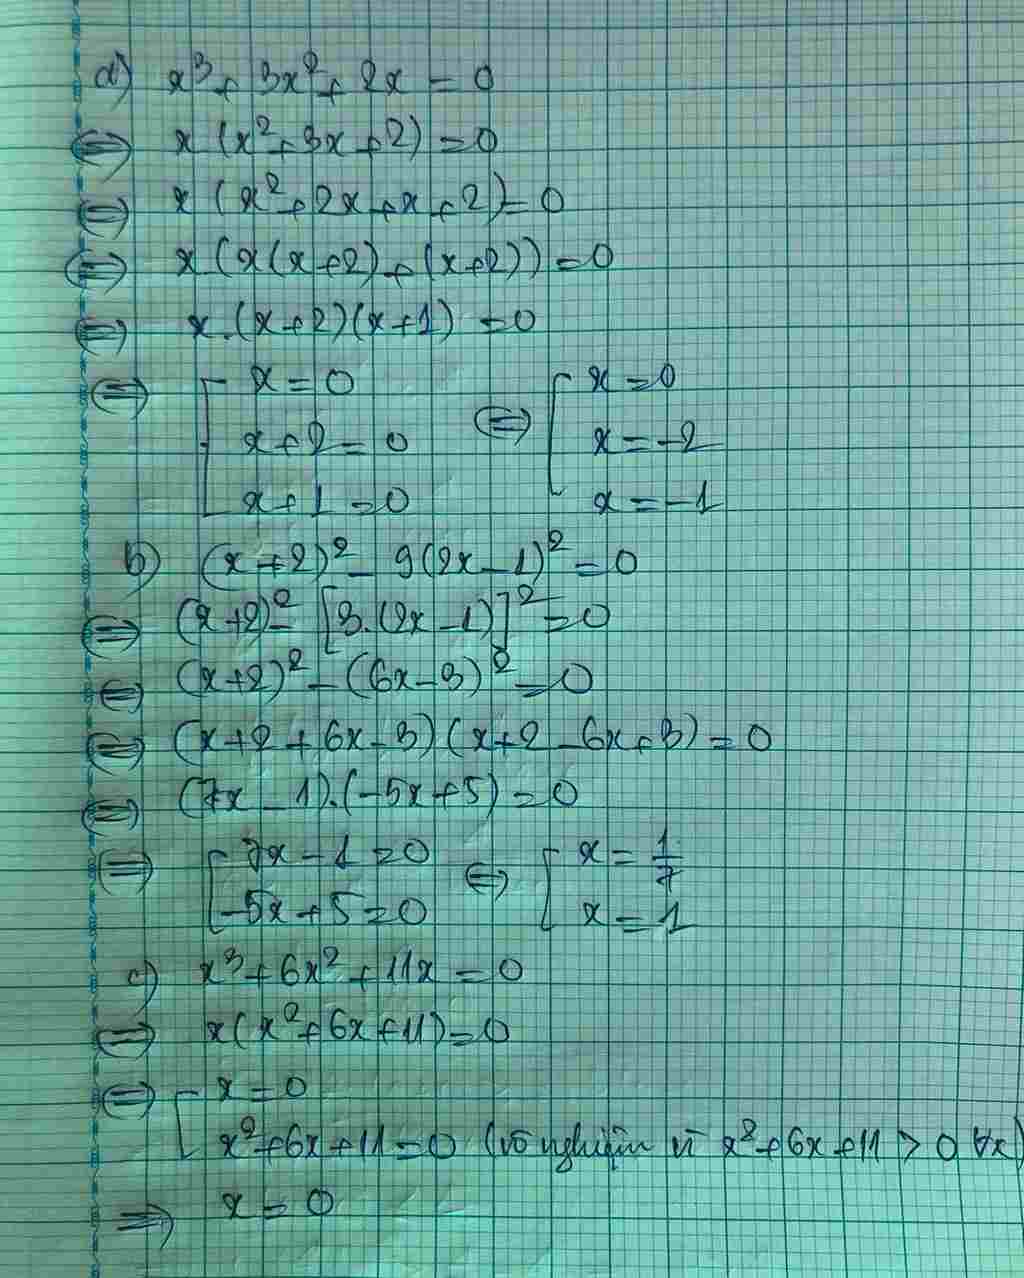 a) x³ + 3x² + 2x = 0
⇔ x (x² + 3x + 2) = 0
⇔ x (x² + 2x + x + 2) = 0
⇔ x (x(x+2) + (x+2)) = 0
⇔ x.(x+2)(x+1) = 0
⇔ [ x = 0 ⇔ [ x = 0
x + 2 = 0 x = -2
x + 1 = 0 x = -1
b) (x+2)² - 9(2x-1)² = 0
⇔ (x+2)² - [3.(2x-1)]² = 0
⇔ (x+2)² - (6x-3)² = 0
⇔ (x+2+6x-3)(x+2-6x+3) = 0
⇔ (7x-1).(-5x+5) = 0
⇔ [ 7x - 1 = 0 ⇔ [ x = 1/7
-5x + 5 = 0 x = 1
c) x³ + 6x² + 11x = 0
⇔ x(x² + 6x + 11) = 0
⇔ [ x = 0
x² + 6x + 11 = 0 (vô nghiệm vì x² + 6x + 11 > 0 ∀x)
⇒ x = 0